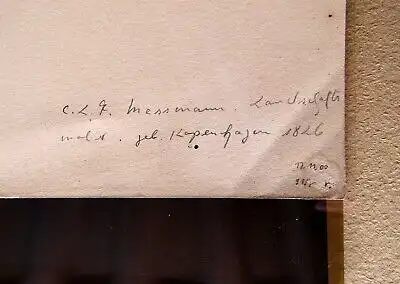 C. L. F. Messmann. Landschafts
maler. geb. Kopenhagen 1826